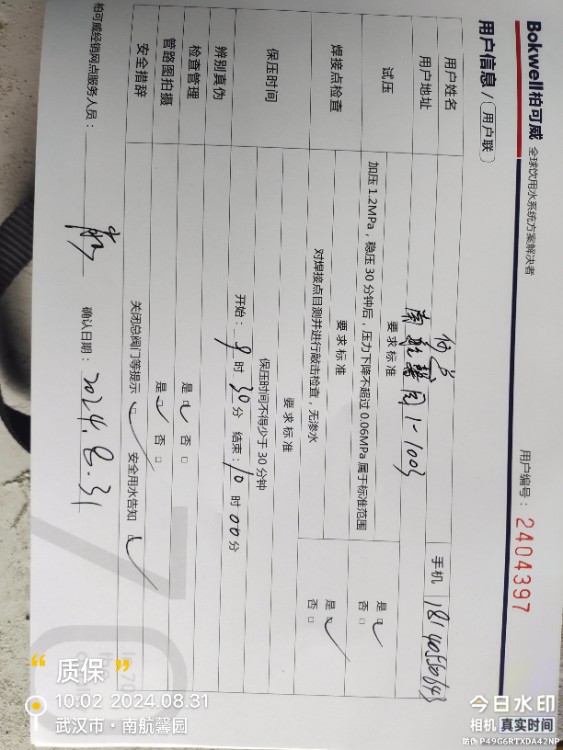 Bokwell柏可威 全球饮用水系统方案解决者
用户信息 / 用户联
用户编号：2404397
用户姓名
手机
用户地址 南航馨园1-1003
试压 要求标准
加压1.2MPa，稳压30分钟后，压力下降不超过0.06MPa属于标准范围 是 否
焊接点检查 要求标准
对焊接点目测并进行敲击检查，无渗水 是 否
保压时间 要求标准
保压时间不得少于30分钟
开始：9时30分 结束：10时00分
辨别真伪
检查管理 是 否
管路图拍摄 是 否
安全措辞 关闭总阀门等提示 安全用水告知
柏可威经销网点服务人员： 确认日期：2024.8.31
70
质保
10:02 2024.08.31
武汉市·南航馨园
今日水印
相机 真实时间
防伪 P49G6RTXDA42NP